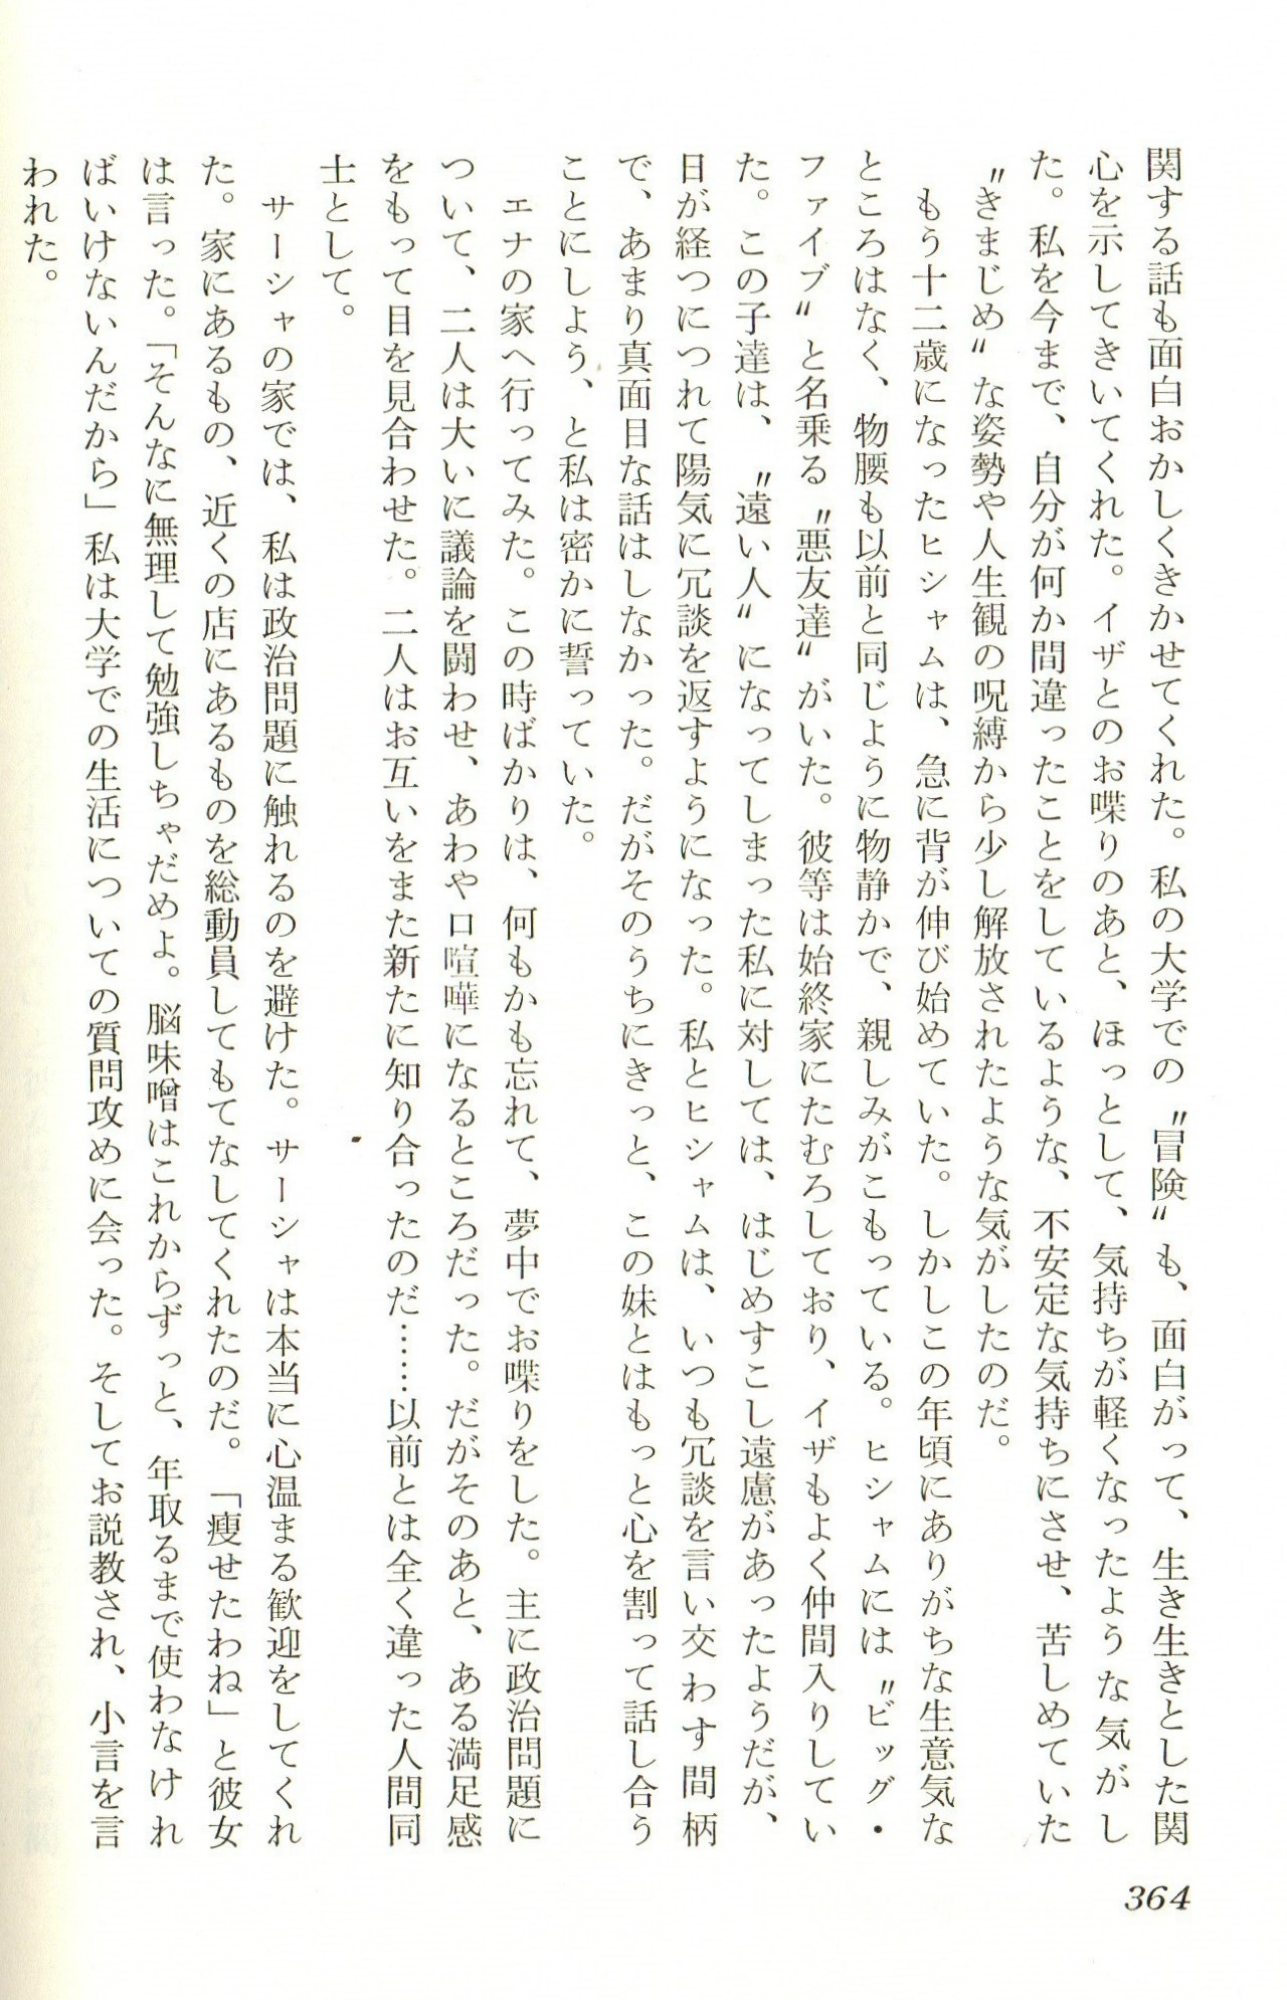 関する話も面白おかしくきかせてくれた。私の大学での〝冒険〟も、面白がって、生き生きとした関
心を示してきいてくれた。イザとのお喋りのあと、ほっとして、気持ちが軽くなったような気がし
た。私を今まで、自分が何か間違ったことをしているような、不安定な気持ちにさせ、苦しめていた
〝きまじめ〟な姿勢や人生観の呪縛から少し解放されたような気がしたのだ。
もう十二歳になったヒシャムは、急に背が伸び始めていた。しかしこの年頃にありがちな生意気な
ところはなく、物腰も以前と同じように物静かで、親しみがこもっている。ヒシャムには〝ビッグ・
ファイブ〟と名乗る〝悪友達〟がいた。彼等は始終家にたむろしており、イザもよく仲間入りしてい
た。この子達は、〝遠い人〟になってしまった私に対しては、はじめすこし遠慮があったようだが、
日が経つにつれて陽気に冗談を返すようになった。私とヒシャムは、いつも冗談を言い交わす間柄
で、あまり真面目な話はしなかった。だがそのうちにきっと、この妹とはもっと心を割って話し合う
ことにしよう、と私は密かに誓っていた。
エナの家へ行ってみた。この時ばかりは、何もかも忘れて、夢中でお喋りをした。主に政治問題に
ついて、二人は大いに議論を闘わせ、あわや口喧嘩になるところだった。だがそのあと、ある満足感
をもって目を見合わせた。二人はお互いをまた新たに知り合ったのだ……以前とは全く違った人間同
士として。
サーシャの家では、私は政治問題に触れるのを避けた。サーシャは本当に心温まる歓迎をしてくれ
た。家にあるもの、近くの店にあるものを総動員してもてなしてくれたのだ。「痩せたわね」と彼女
は言った。「そんなに無理して勉強しちゃだめよ。脳味噌はこれからずっと、年取るまで使わなけれ
ばいけないんだから」私は大学での生活についての質問攻めに会った。そしてお説教され、小言を言
われた。
364